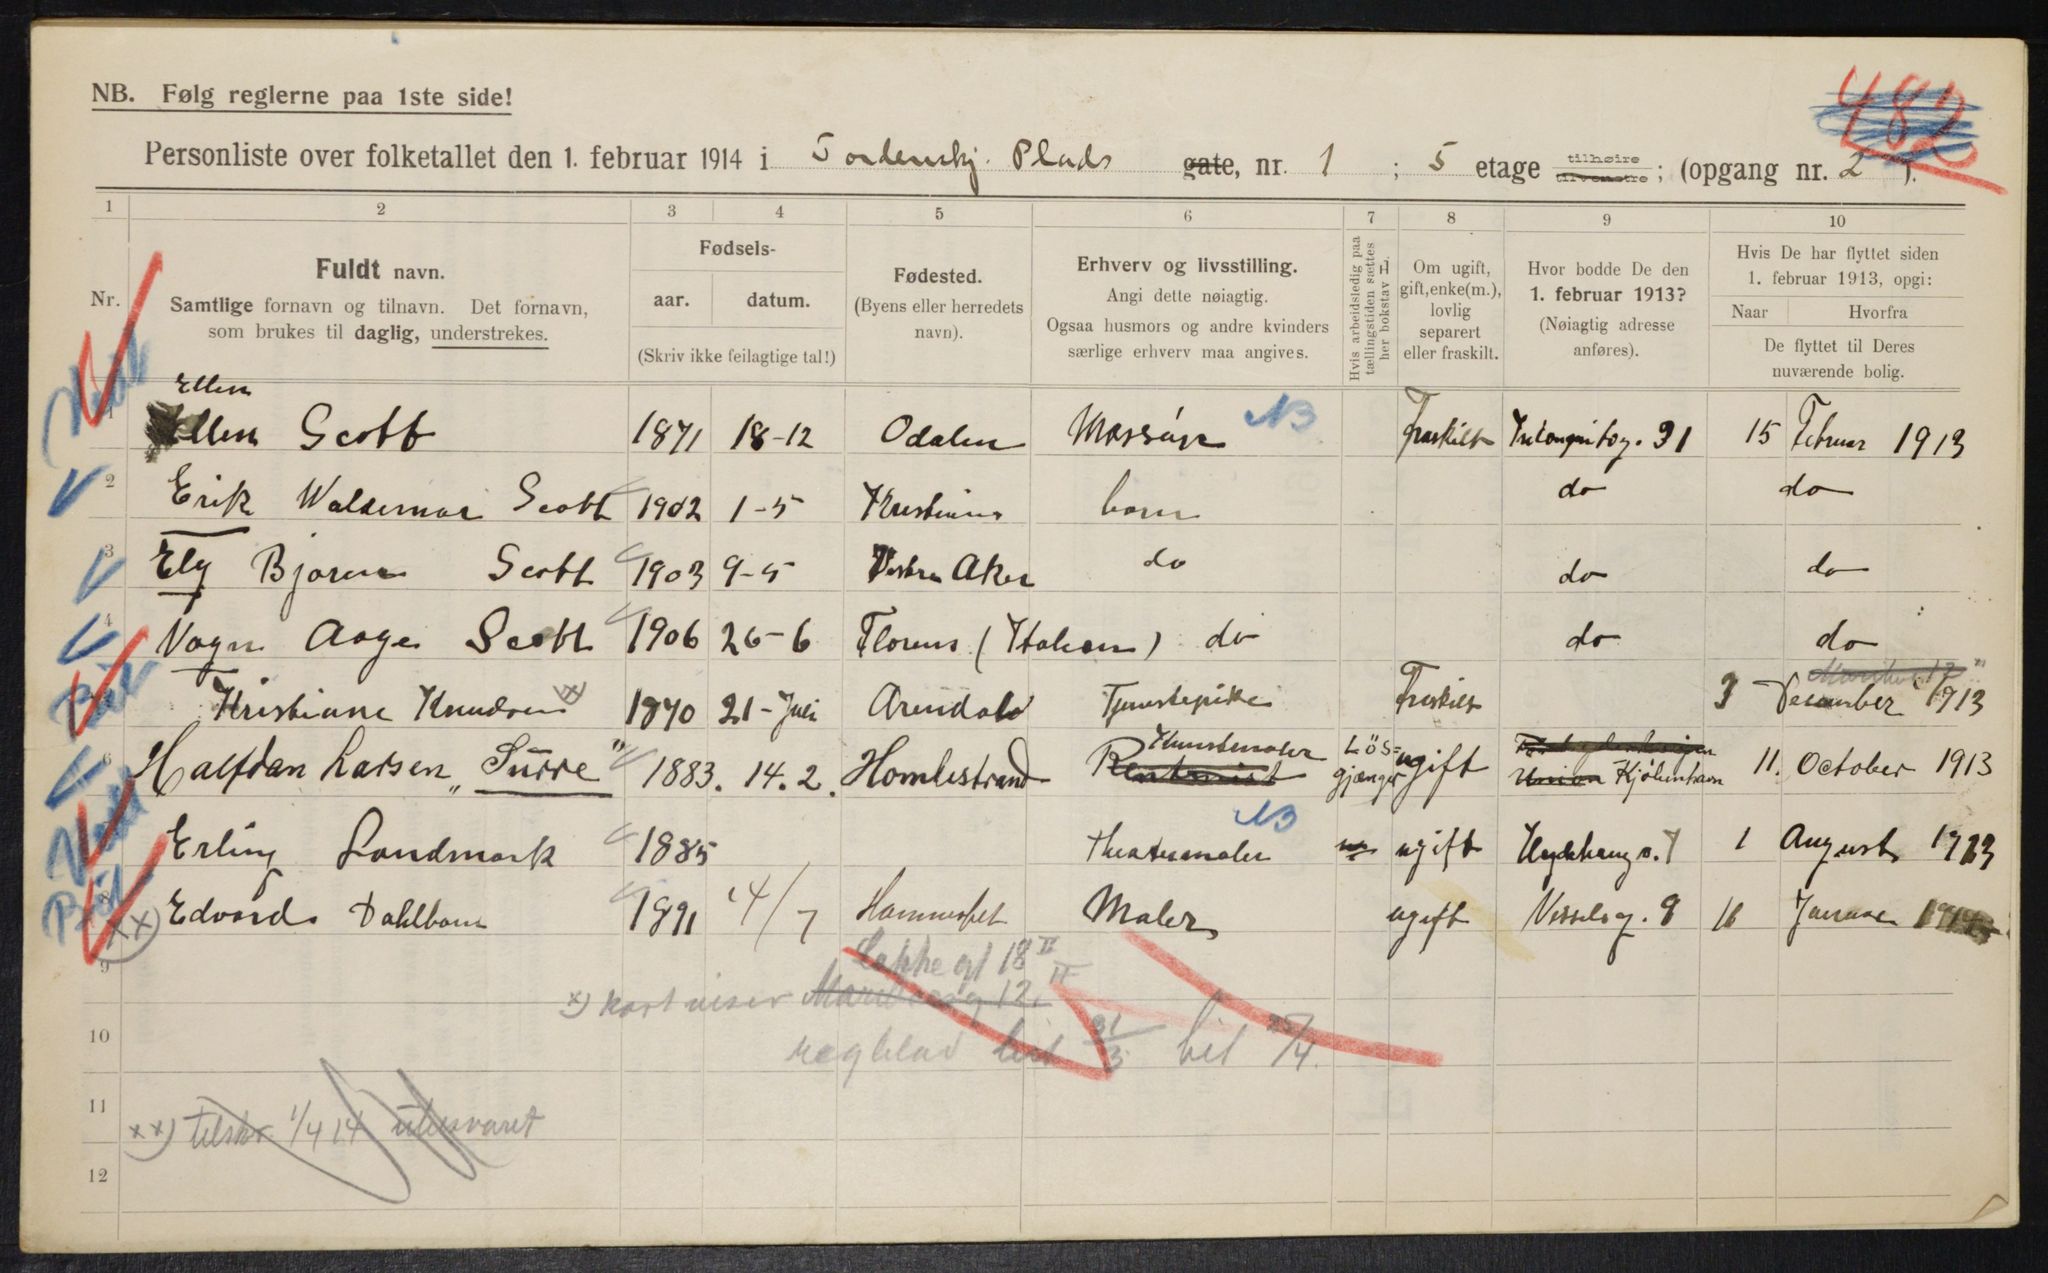 482
NB. Følg reglerne paa 1ste side!
Personliste over folketallet den 1. februar 1914 i Tordenskj. Plads gate, nr. 1 ; 5 etage tilhøire tilvenstre ; (opgang nr. 2 ).
1 2 3 4 5 6 7 8 9 10
Nr.
Fuldt navn.
Samtlige fornavn og tilnavn. Det fornavn,
som brukes til daglig, understrekes.
Fødsels-
aar. datum.
(Skriv ikke feilagtige tal!)
Fødested.
(Byens eller herredets
navn).
Erhverv og livsstilling.
Angi dette nøiagtig.
Ogsaa husmors og andre kvinders
særlige erhverv maa angives.
Hvis arbeidsledig paa
tællingstiden sættes
her bokstav H
Om ugift,
gift, enke(m.),
lovlig
separert
eller fraskilt.
Hvor bodde De den
1. februar 1913?
(Nøiagtig adresse
anføres).
Hvis De har flyttet siden
1. februar 1913, opgi:
Naar Hvorfra
De flyttet til Deres
nuværende bolig.
Ellen
1 Ellen Scott 1871 18-12 Odalen Massöse NB fraskilt 31 15 Februar 1913
2 Erik Waldemar Scott 1902 1-5 Kristiania barn do do
3 Ely Bjoren Scott 1903 9-5 Vestre Aker do do do
4 Vagn Aage Scott 1906 26-6 Florens (Italien) do do do
Kristiane Knudsen x) 1870 21-Juli Arendal Tjenestepike Fraskilt 3 December 1913
6 Halfdan Larsen „Surre" 1883. 14.2. Homlestrand Rentenist Kunstmaler Lös= gjænger ugift Union Kjöbenhavn 11. October 1913
Erling Landmark 1885 Theatermaler NB ugift 7 1 August 1913
8 xx) Edvard Dahlbom 1891 4/7 Hammerfest Maler ugift 9 16 Januar 1914
9
18 II
x) kort viser 12 II
10
regblad 31/3 hit 25/4.
11
xx) tilskr 1/4 14 ubesvaret
12